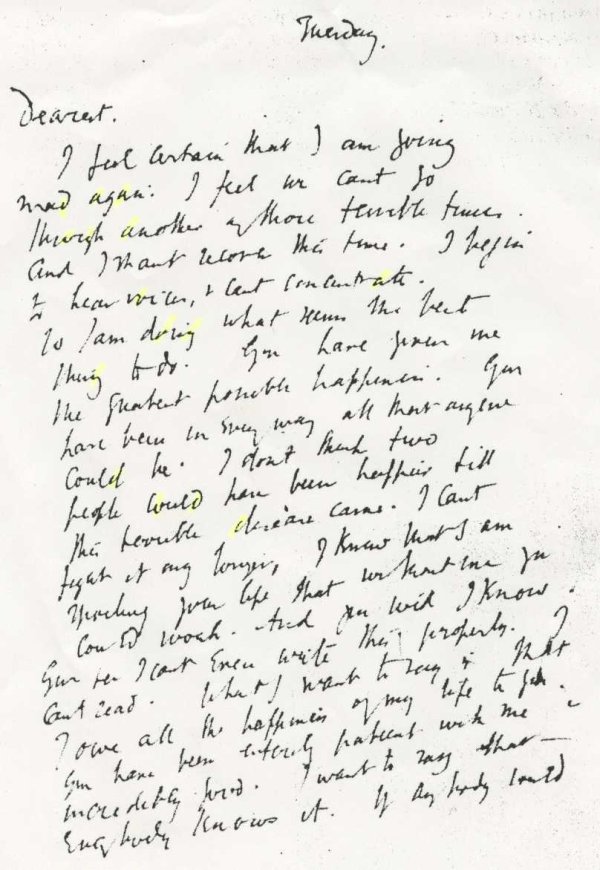 Tuesday.
Dearest.
I feel certain that I am going
mad again: I feel we cant go
through another of those terrible times.
And I shant recover this time. I begin
to hear voices, & cant concentrate.
So I am doing what seems the best
thing to do. You have given me
the greatest possible happiness. You
have been in every way all that anyone
could be. I dont think two
people could have been happier till
this terrible disease came. I cant
fight it any longer, I know that I am
spoiling your life that without me you
could work. And you will I know.
You see I cant even write this properly. I
cant read. What I want to say is that
I owe all the happiness of my life to you.
You have been entirely patient with me &
incredibly good. I want to say that —
everybody knows it. If anybody could